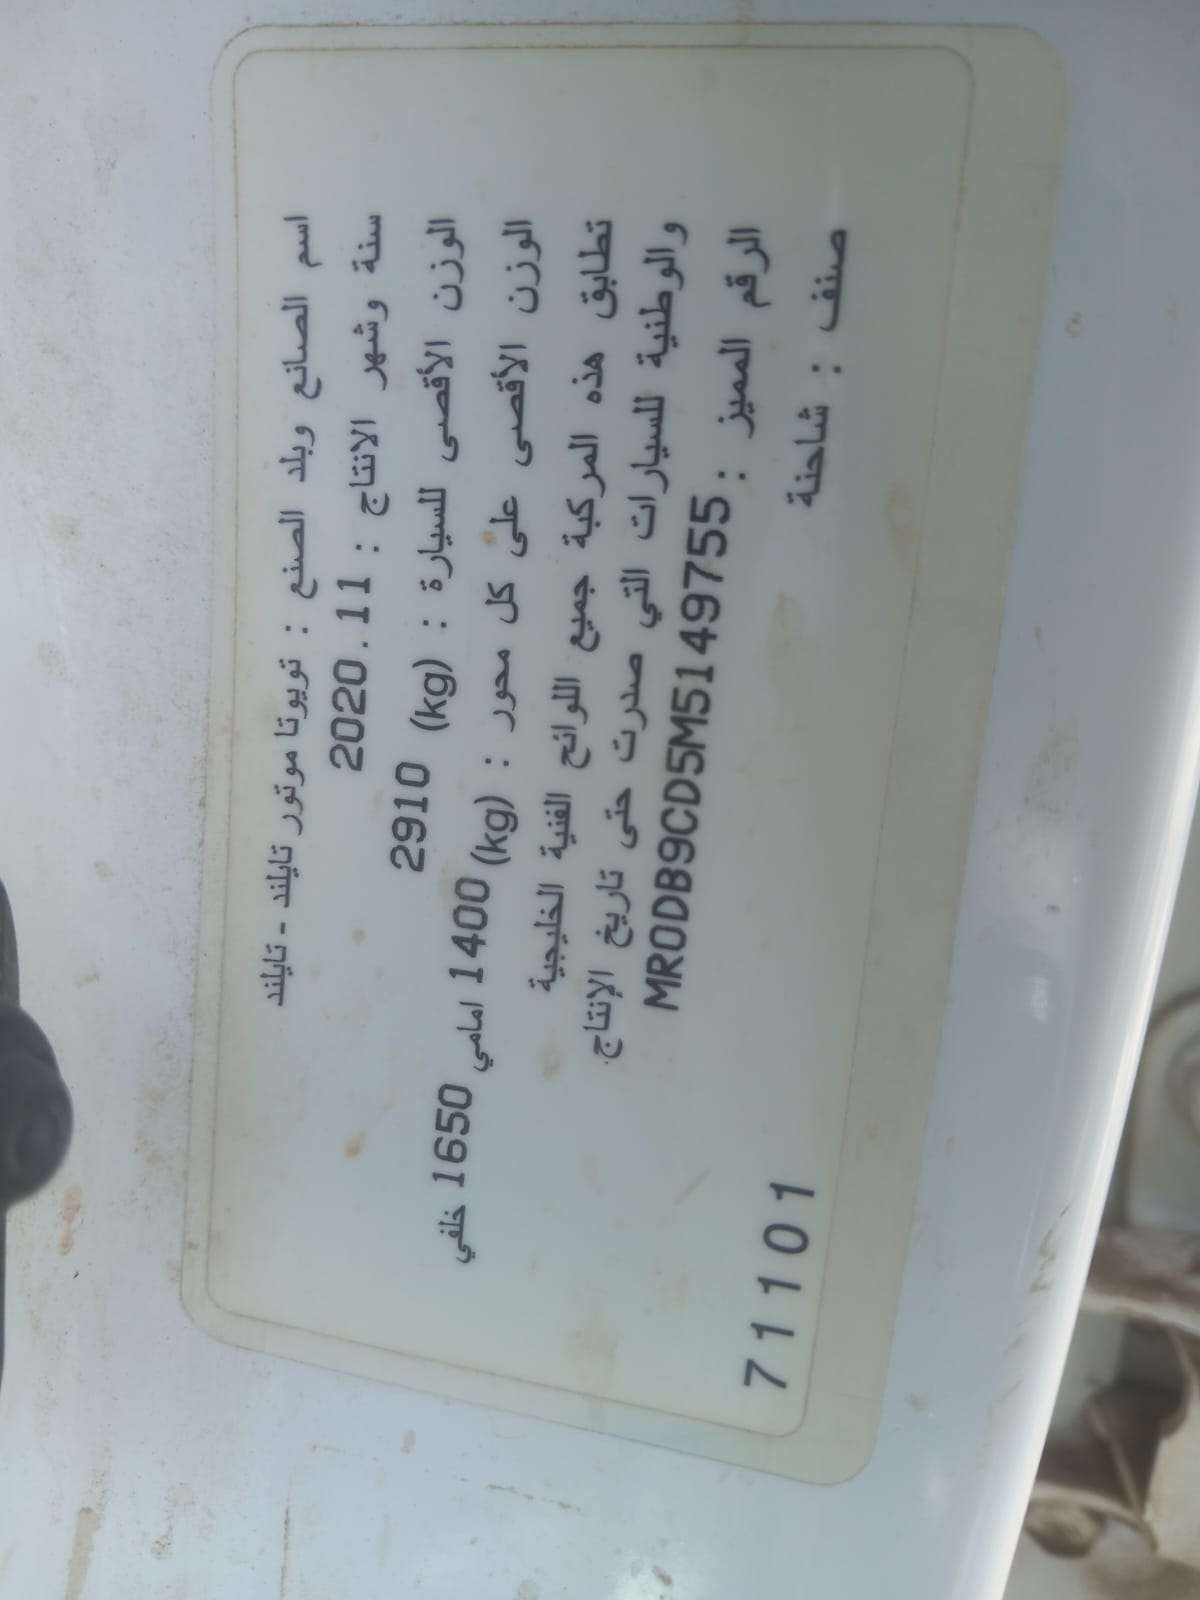 اسم الصانع وبلد الصنع : تويوتا موتور تايلند - تايلند
سنة وشهر الانتاج : 2020.11
الوزن الأقصى للسيارة : (kg) 2910
الوزن الأقصى على كل محور : (kg) 1400 امامي 1650 خلفي
تطابق هذه المركبة جميع اللوائح الفنية الخليجية
والوطنية للسيارات التي صدرت حتى تاريخ الإنتاج.
الرقم المميز : MR0DB9CD5M5149755
صنف : شاحنة
71101